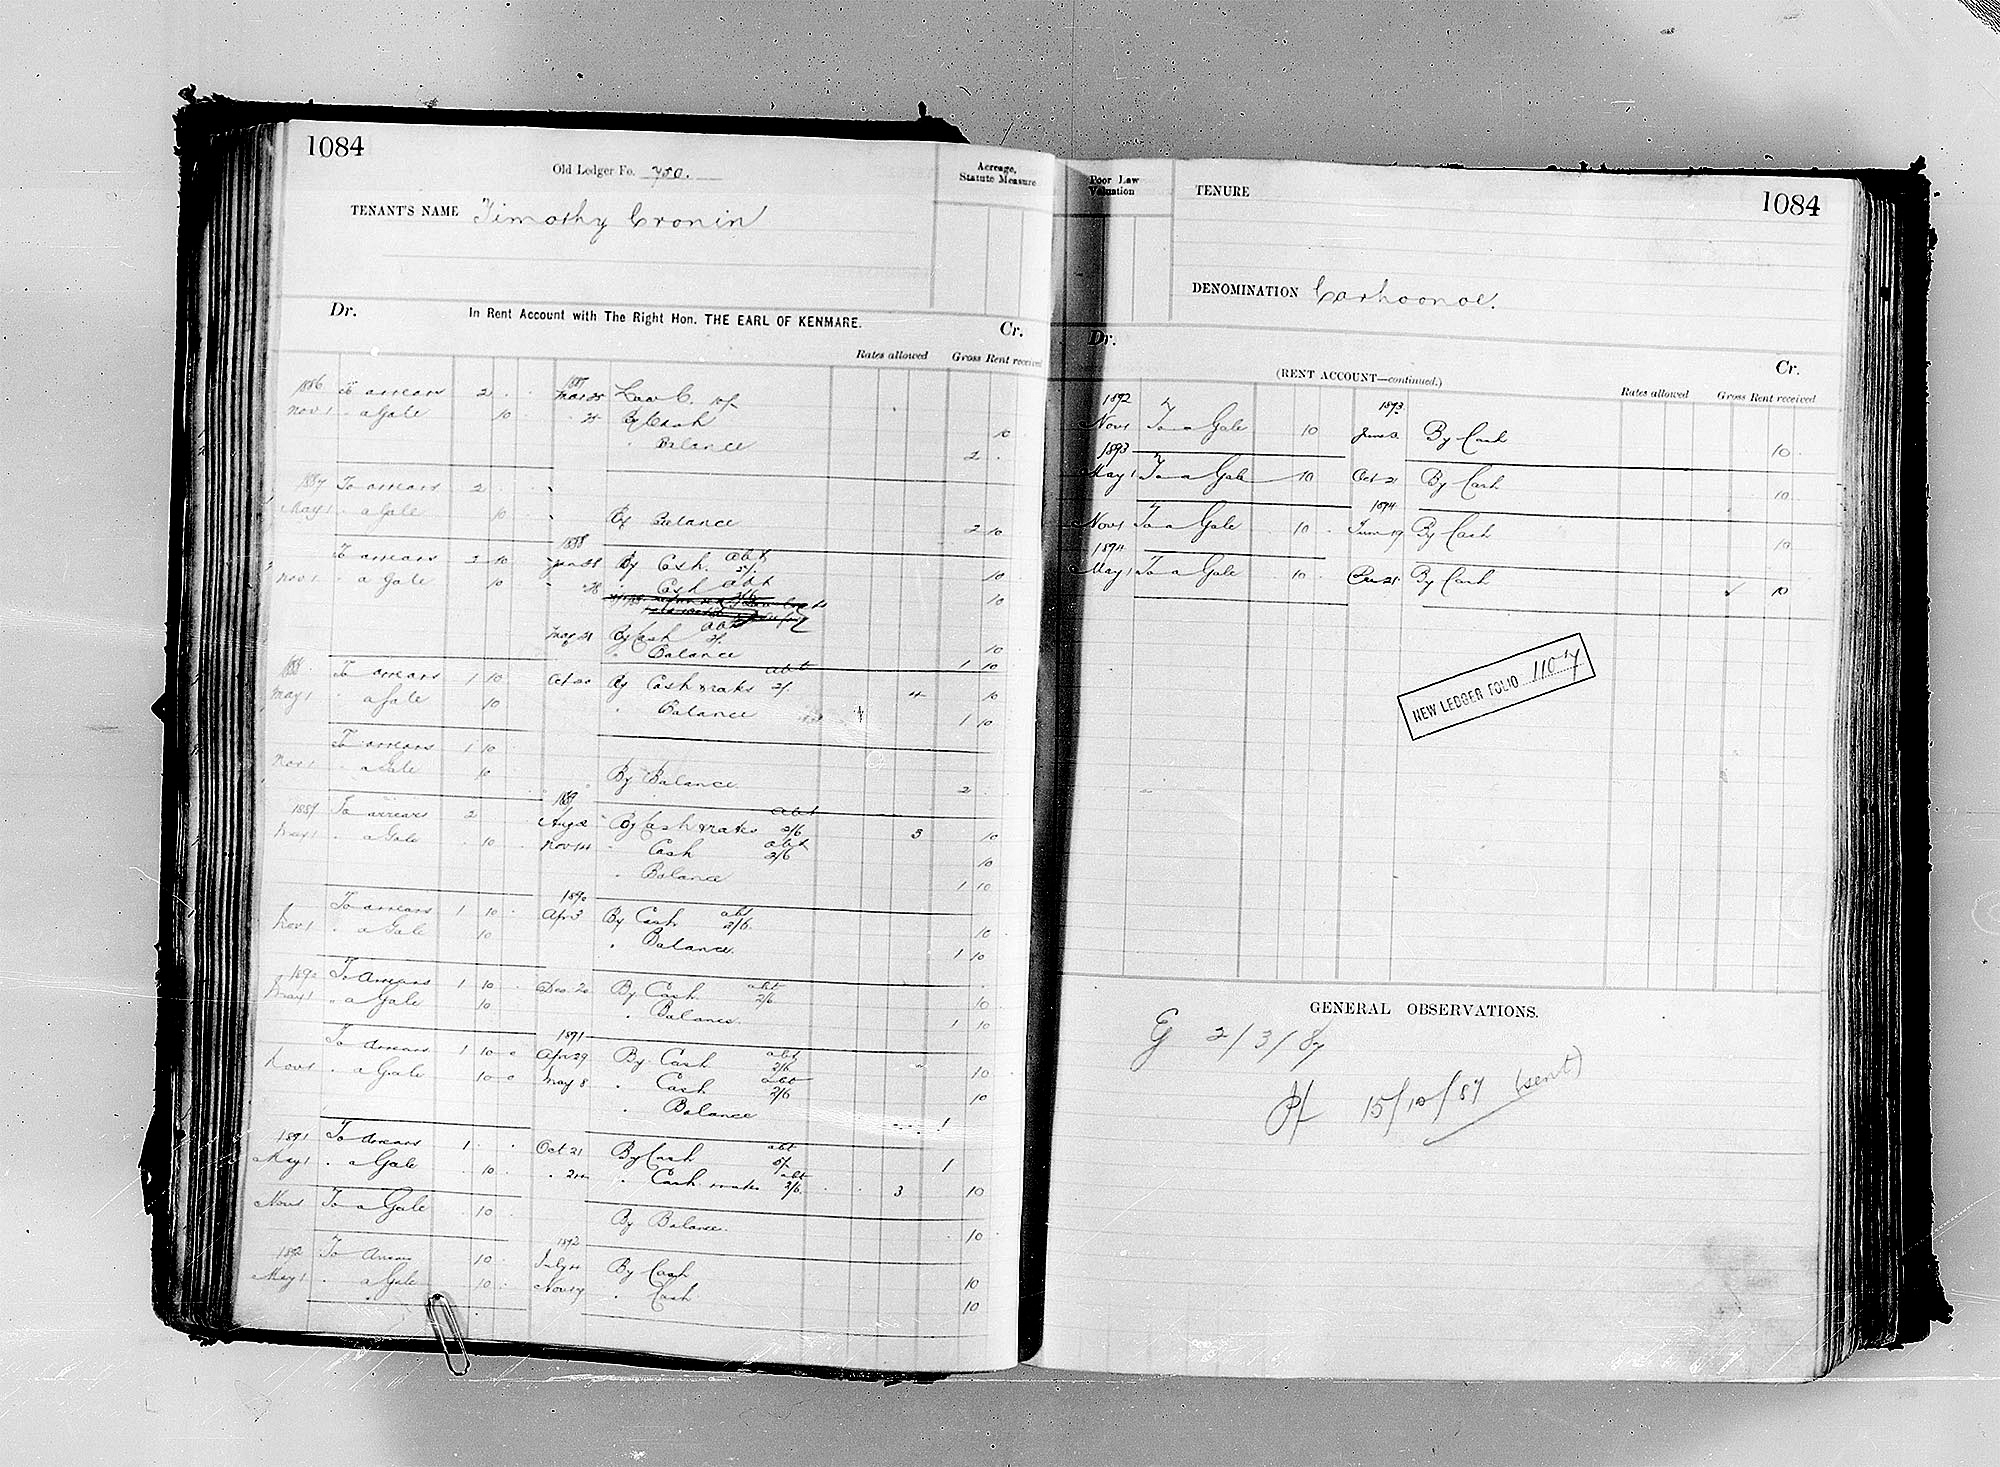 1084
Old Ledger Fo. 750.
Acreage, Statute Measure
TENANT'S NAME Timothy Cronin
Dr. In Rent Account with The Right Hon. THE EARL OF KENMARE. Cr.
Rates allowed Gross Rent received
1886 To arrears 2 . . 1887 Mar 25 Law C.
Nov 1 " a Gale 10 . " 25 By Cash 10
" Balance 2 .
1887 To arrears 2
May 1 " a Gale 10 By Balance 2 10
1888
To arrears 2 10 Jan 28 By Cash abt 2/. 10
Nov 1 " a Gale 10 " 28 " Cash abt 2/6 10
May 21 By Cash abt 2/. 10
" Balance 1 10
1888 To arrears 1 10 Oct 20 By Cash & rates abt 2/. 4 10
May 1 " a Gale 10 " Balance 1 10
To arrears 1 10
Nov 1 " a Gale 10 By Balance 2 .
1889
1889 To arrears 2 Aug 2 By Cash & rates abt 2/6 3 10
May 1 " a Gale 10 Nov 14 " Cash abt 2/6 10
" Balance 1 10
1890
To arrears 1 10 Apr 3 By Cash abt 2/6 10
Nov 1 " a Gale 10 " Balance. 1 10
1890 To Arrears 1 10 Dec 20 By Cash abt 2/6 10
May 1 " a Gale 10 " Balance. 1 10
1891
To Arrears 1 10 0 Apr 29 By Cash abt 2/6 10
Nov 1 " a Gale 10 0 May 8 " Cash abt 2/6 10
" Balance 1
1891 To Arrears 1 . . Oct 21 By Cash abt 5/. 1
May 1 " a Gale 10 " Cash rates abt 2/6 3 10
Nov 1 To a Gale 10 By Balance. 10
1892
1892 To Arrears 10 July 4 By Cash 10
May 1 " a Gale 10 Nov 17 " Cash 10
Poor Law Valuation
TENURE
1084
DENOMINATION Carhoonoe.
Dr. Cr.
(RENT ACCOUNT—continued.)
Rates allowed Gross Rent received
1892 1893
Nov 1 To a Gale 10 June 3 By Cash 10
1893
May 1 To a Gale 10 Oct 21 By Cash 10
1894
Nov 1 To a Gale 10 June 19 By Cash 10
1894
May 1 To a Gale 10 By Cash ✓ 10
NEW LEDGER FOLIO 1107
GENERAL OBSERVATIONS.
2/3/87
15/10/87 (sent)